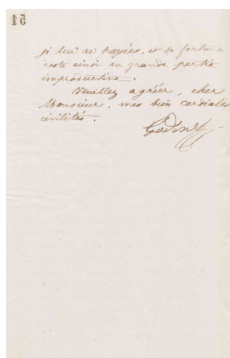 51
je lui ai       et sa fortune
reste ainsi en grande partie
improductive.
Veuillez agréer, cher
Monsieur, mes bien cordiales
civilités.
Godin